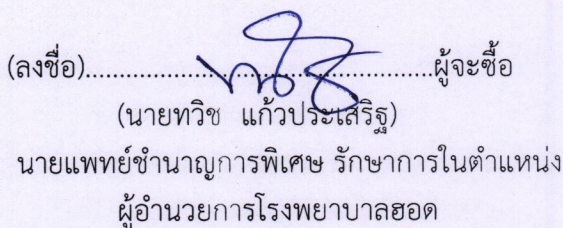 (ลงชื่อ)..........................................ผู้จะซื้อ
(นายทวิช แก้วประเสริฐ)
นายแพทย์ชำนาญการพิเศษ รักษาการในตำแหน่ง
ผู้อำนวยการโรงพยาบาลฮอด